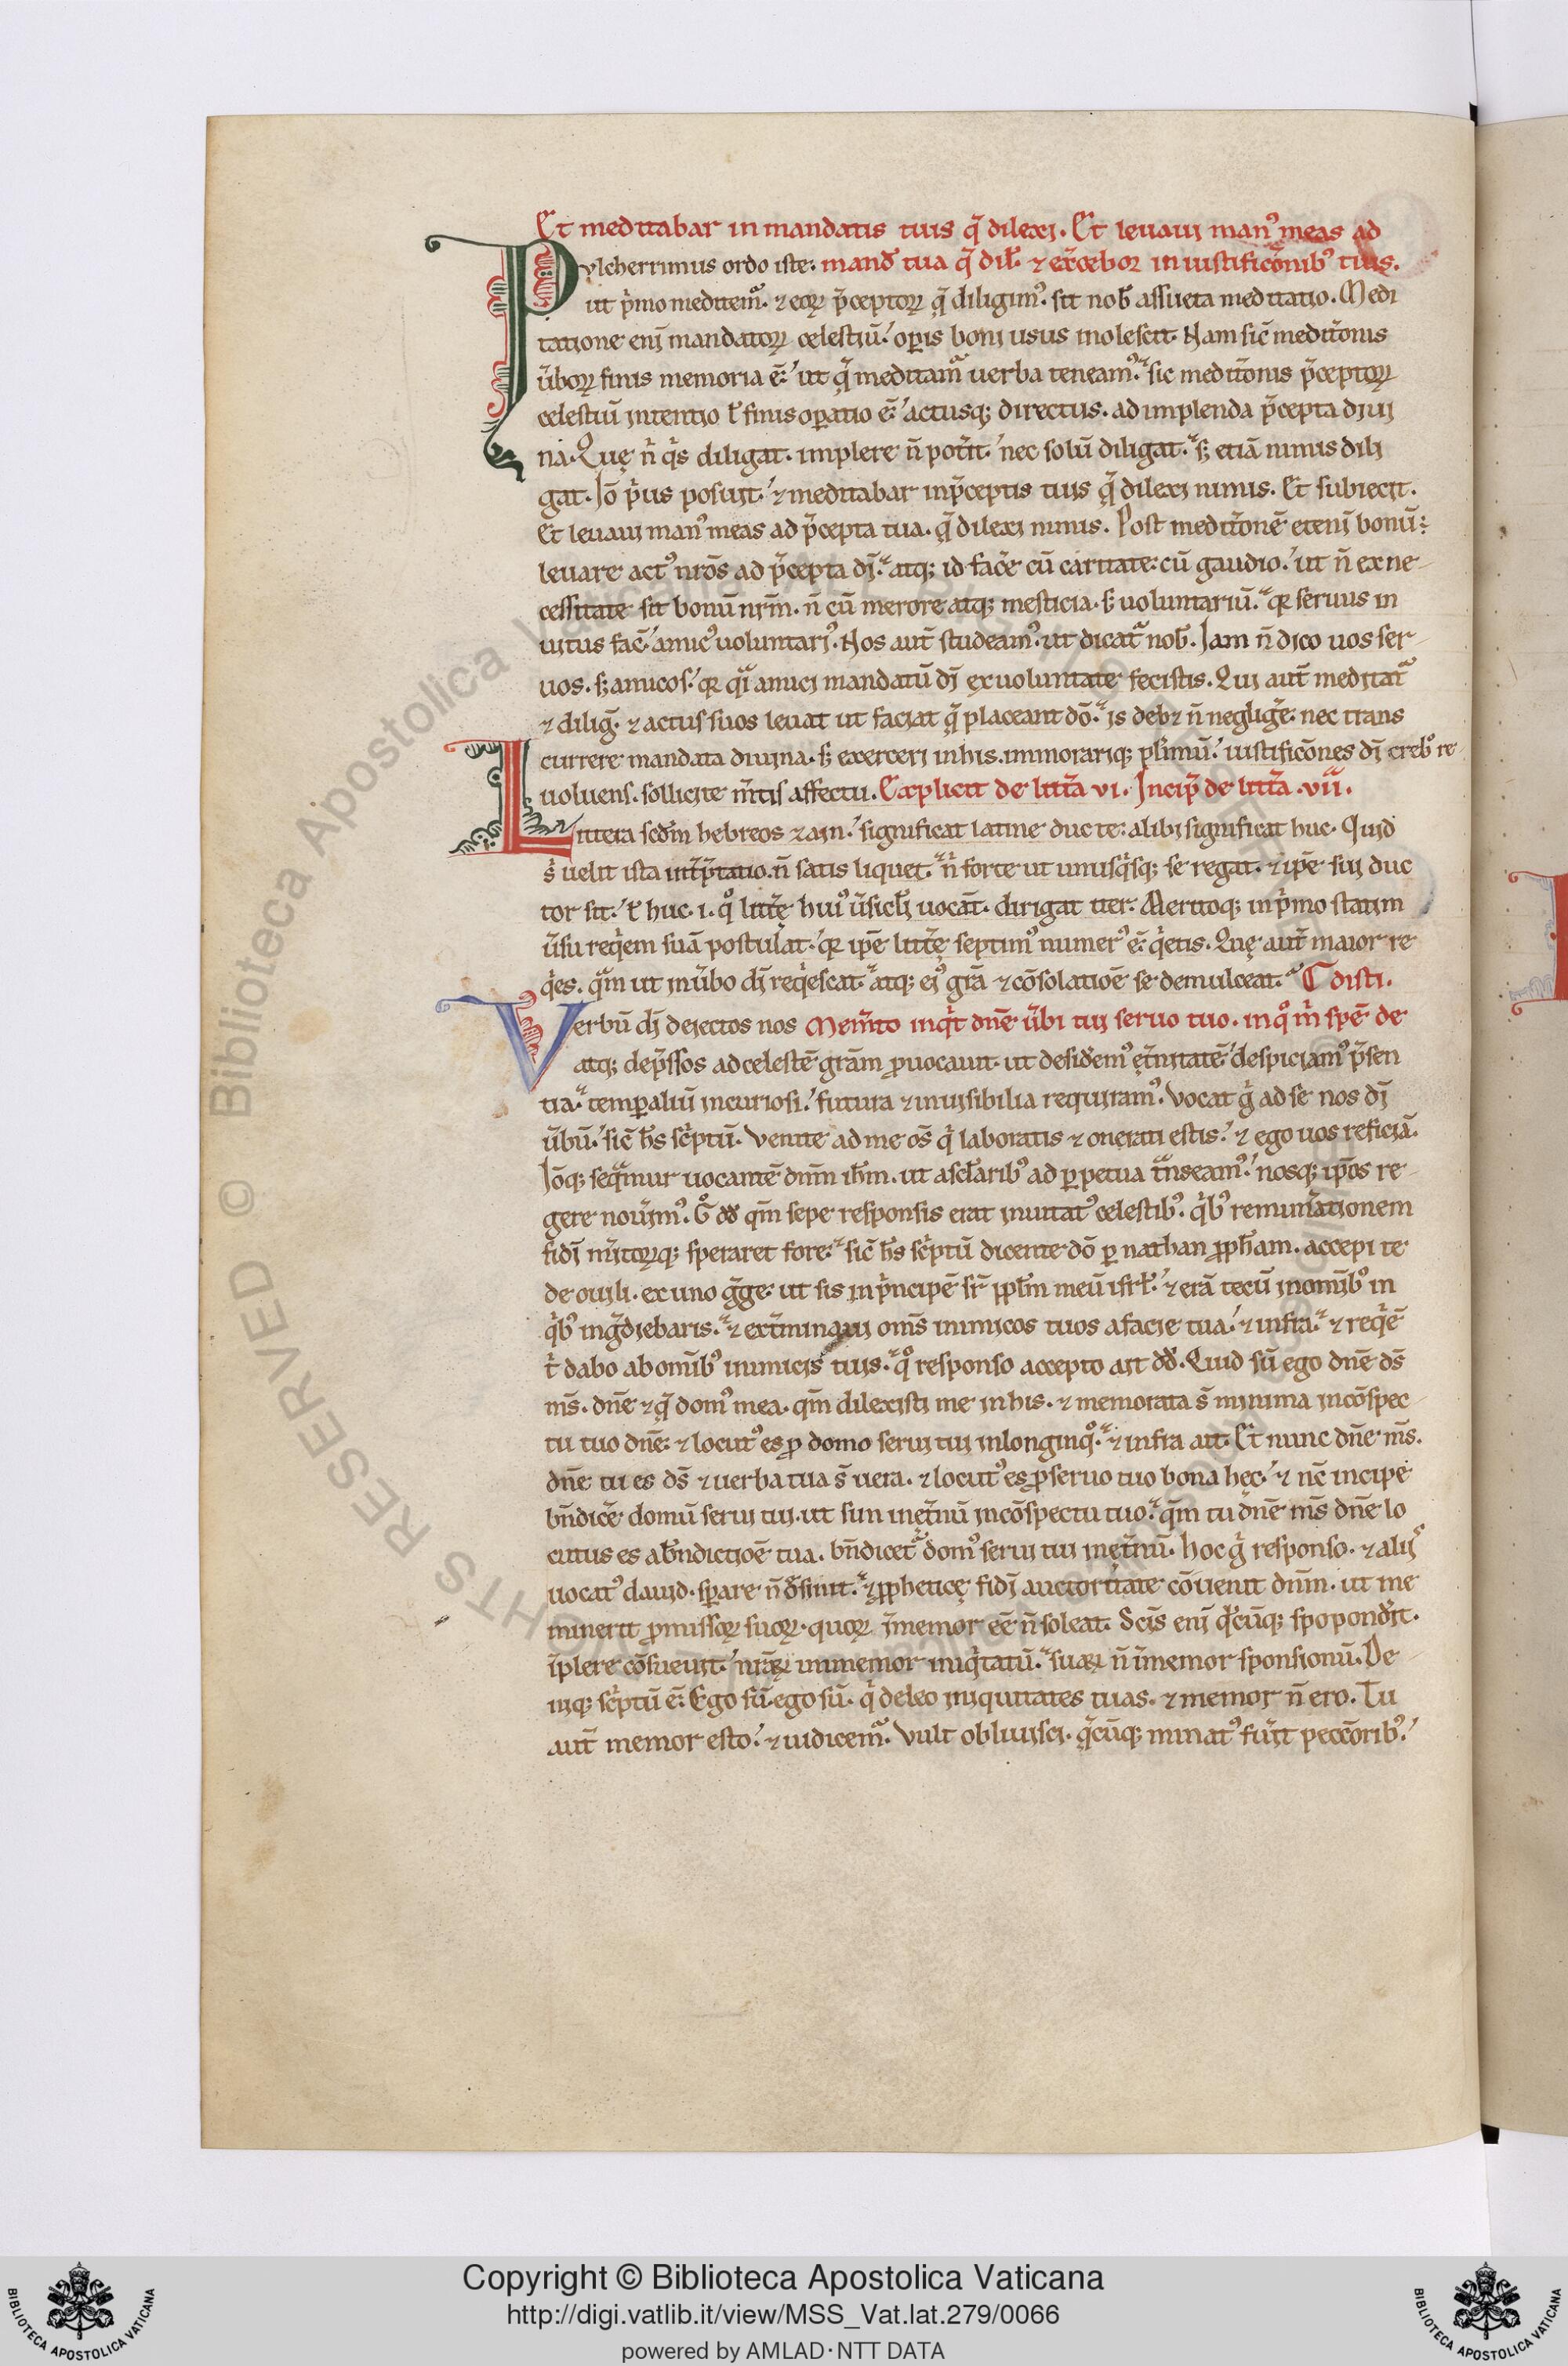 Et meditabar in mandatis tuis q̄ dilexi. Et levavi man᷒ meas ad
Pvlcherrimus ordo iste: mand̄ tua q̄ dil̄. ⁊ ex̄cebor in iustificōnib᷒ tuis.
ut p̄mo meditem᷒. ⁊ eoꝝ p̄ceptoꝝ q̄ diligim᷒. sit nob̄ assueta meditatio. Medi
tatione eni mandatoꝝ celestiū. opis boni usus inolescit. Nam sic̄ medit̄onis
ūboꝝ finis memoria ē. ut q̄ meditam᷒ uerba teneam᷒. sic medit̄onis p̄ceptoꝝ
celestiū intentio ł finis opatio ē. actusq; directus. ad implenda p̄cepta diui
na. Quę n̄ q̄s diligat. implere n̄ pot̄it. nec solū diligat. s; etiā nimis dili
gat. Jō p̄us posuit. ⁊ meditabar inp̄ceptis tuis q̄ dilexi nimis. Et subiecit.
Et leuaui man᷒ meas ad p̄cepta tua. q̄ dilexi nimis. Post medit̄onē eteni bonū:
leuare act᷒ nr̄os ad p̄cepta dī. atq; id fac̄e cū caritate: cū gaudio. ut n̄ ex ne-
cessitate sit bonū nr̄m. n̄ cū merore atq; mesticia. s; uoluntariū. qꝛ seruus in
uitus fac̄. amic᷒ uoluntari᷒. Nos aut̄ studeam᷒. ut dicat᷒ nob̄. Jam n̄ dico uos ser-
uos. s; amicos. qꝛ q̄i amici mandatū dī ex uoluntate fecistis. Qui aut̄ meditat᷒
⁊ diliḡ. ⁊ actus suos leuat ut faciat q̄ placeant dō. is deb⁊ n̄ negliḡe. nec trans
currere mandata diuina. s; exerceri inhis. immorariq; pl̄imū. iustificōnes dī creb᷒ re
uoluens. sollicite m̄tis affectu. Explicit de litt̄a vi. Incip̄ de litt̄a .vii.
Littera scdm hebreos zain. significat latine duc te: alibi significat huc. Quid
s̄ uelit ista int̄p̄tatio. n̄ satis liquet. n̄ forte ut unusq̄sq; se regat. ⁊ ip̄e sui duc
tor sit. ł huc .i. q̊ litt̄ę hui᷒ ūsicl̄i uocāt. dirigat iter. Meritoq; inp̄mo statim
ūsu req̄em suā postulat. qꝛ ip̄e litt̄ę septim᷒ numer᷒ ē. q̄etis. Quę aut̄ maior re
q̄es. q̄m ut inūbo dī req̄escat. atq; ei᷒ gr̄a ⁊ cōsolatioē se demulceat. C disti.
Verbū dī deiectos nos Mem̄to inq̄t dn̄e ūbi tui seruo tuo. in q̊ m̄ spē de
atq; dep̄ssos ad celestē gr̄am puocauit. ut desid̄em᷒ et̄nitatē. despiciam᷒ p̄sen
tia. tempaliū incuriosi. futura ⁊ inuisibilia requiram᷒. Vocat g̊ ad se nos dī
ūbū. sic̄ h̄s sc̄ptū. Venite ad me om̄s q̄ laboratis ⁊ onerati estis. ⁊ ego uos reficiā.
Jōq; seq̄mur uocantē dn̄m ih̄m. ut a sc̄larib᷒ ad ppetua t̄nseam᷒. nosq; ip̄os re-
gere nou̇im᷒. G̊ dd̄ qm̄ sepe responsis erat inuitat᷒ celestib᷒. q̄b᷒ remun̄ationem
fidī m̄itoꝝq; speraret fore. sic̄ h̄s sc̄ptū dicente dō p nathan pph̄am. accepi te
de ouili. ex uno ḡge. ut sis in p̄ncipē sr̄ ppl̄m meū isrl̄. ⁊ erā tecū inomīb᷒ in
q̄b᷒ inḡdiebaris. ⁊ ext̄minaui om̄s inimicos tuos a facie tua. ⁊ infra. ⁊ req̄ē
t̄ dabo ab omīb᷒ inimicis tuis. q̊ responso accepto ait dd̄. Quid sū ego dn̄e ds̄
ms̄. dn̄e ⁊ q̄ dom᷒ mea. qm̄ dilexisti me in his. ⁊ memorata s̄ minima incōspec-
tu tuo dn̄e. ⁊ locut᷒ es p domo serui tui inlonginq̊. ⁊ infra ait. Et nunc dn̄e ms̄.
dn̄e tu es ds̄ ⁊ uerba tua s̄ uera. ⁊ locut᷒ es pseruo tuo bona hec. ⁊ nc̄ incipe
bn̄dic̄e domū serui tui. ut sim inet̄nū incōspectu tuo. qm̄ tu dn̄e ms̄ dn̄e lo
cutus es a bn̄dictioē tua. bn̄dicet᷒ dom᷒ serui tui inet̄nū. hoc g̊ responso. ⁊ aliis
uocat᷒ dauid. sperare n̄ desiuit. ⁊ pphetice fidī auctoritate cōuenit dn̄m. ut me
minerit pmissoꝝ suoꝝ. quoꝝ īmemor eē n̄ soleat. Scis̄ eni q̄cūq; spopond̄it.
īplere cōsueuit. nr̄aꝝ immemor iniq̄tatū. suaꝝ n̄ īmemor sponsionū. De-
niq; sc̄ptū ē. Ego sū. ego sū. q̄ deleo iniquitates tuas. ⁊ memor n̄ ero. Tu
aut̄ memor esto. ⁊ iudicem᷒. Vult obliuisci. q̄cūq; minat᷒ fu̇it peccōrib᷒.
© Biblioteca Apostolica Vaticana
Copyright © Biblioteca Apostolica Vaticana
http://digi.vatlib.it/view/MSS_Vat.lat.279/0066
powered by AMLAD·NTT DATA
BIBLIOTECA APOSTOLICA VATICANA
BIBLIOTECA APOSTOLICA VATICANA